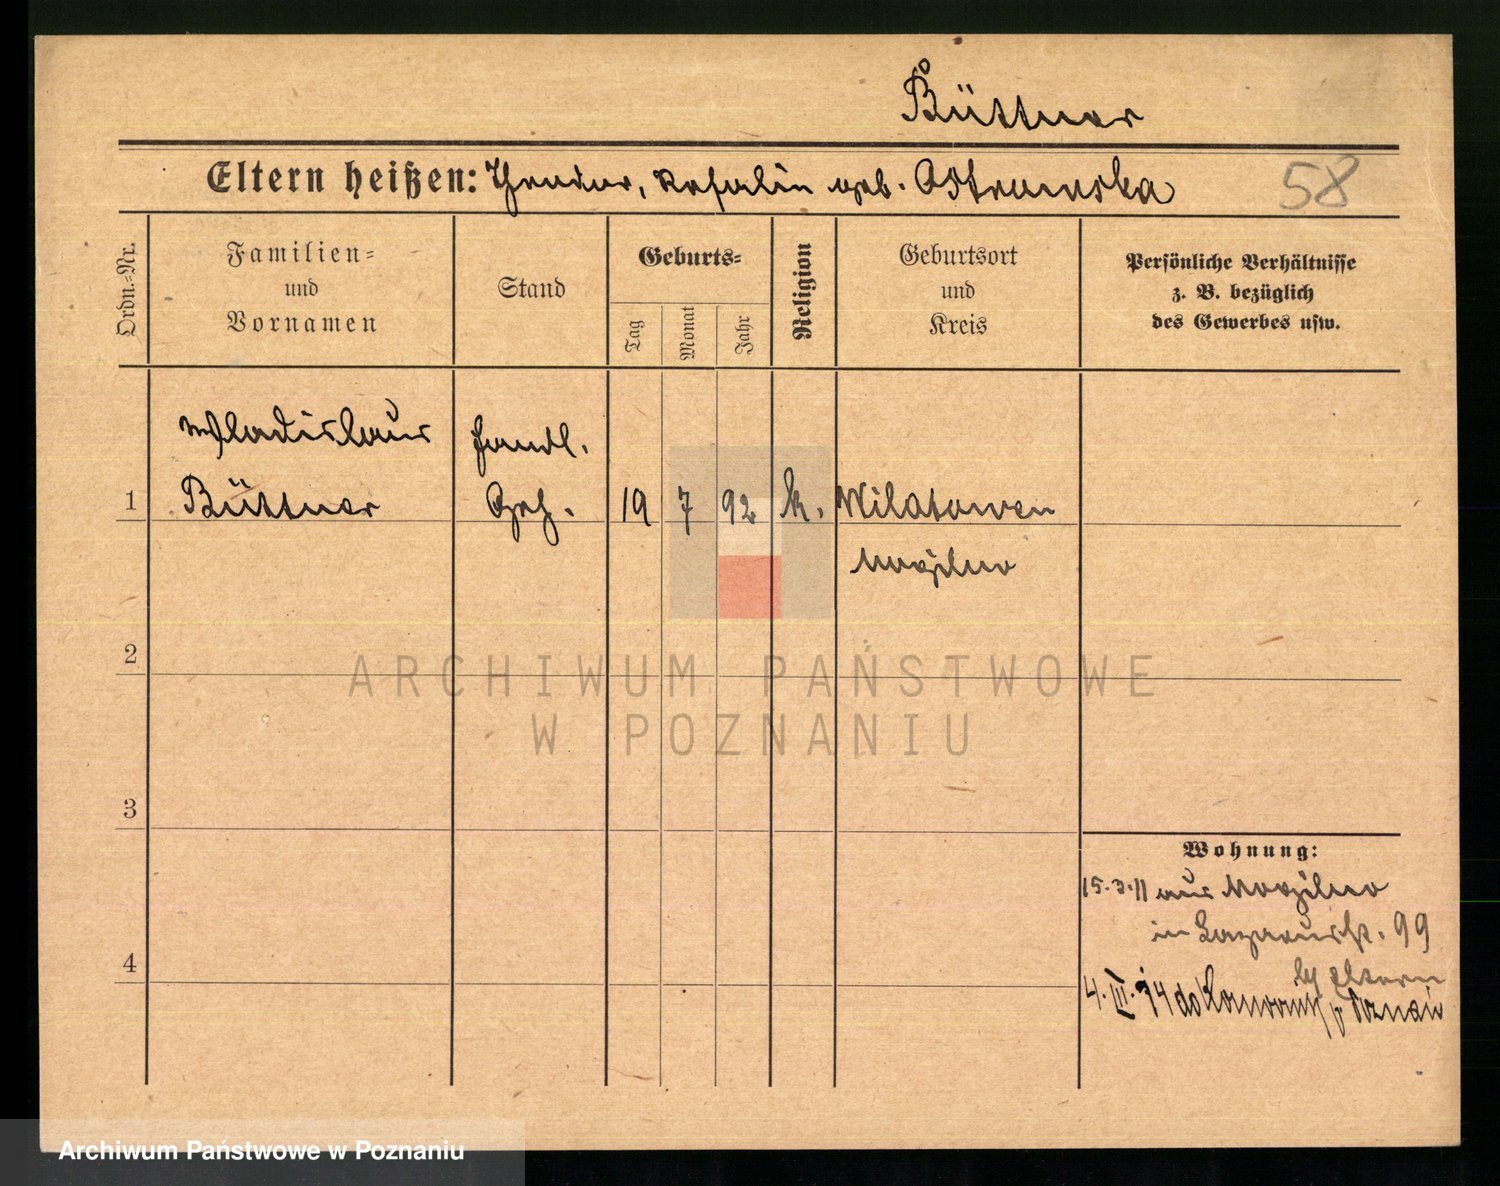 Büttner
Eltern heißen: Theodor, Rosalie geb. Ostrowska
58
Ordn.-Nr.
Familien-
und
Vornamen
Stand
Geburts-
Tag
Monat
Jahr
Religion
Geburtsort
und
Kreis
Persönliche Verhältnisse
z. B. bezüglich
des Gewerbes usw.
Wladislaus
Handl.
1 Büttner Geh. 19 7 92 k. Wilatowen
Mogilno
2
ARCHIWUM PAŃSTWOWE
W POZNANIU
3
Wohnung:
15.3.11 aus Mogilno
in Lazarusstr. 99
4
by Eltern
4. III. 14 do p Poznań
Archiwum Państwowe w Poznaniu